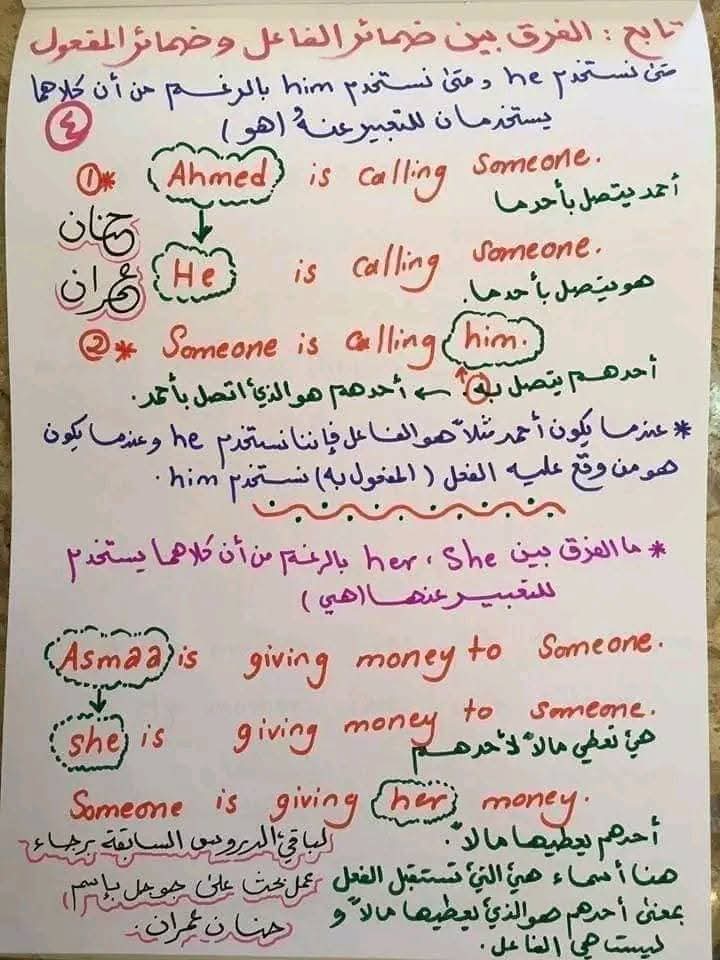 تابع : الفرق بين ضمائر الفاعل وضمائر المفعول
متى نستخدم he ومتى نستخدم him بالرغم من أن كلاهما
يستخدمان للتعبير عنه (هو)
٤
①* Ahmed is calling someone.
أحمد يتصل بأحدما
حنان
عمران
He is calling someone.
هو يتصل بأحدما.
②* Someone is calling him.
أحدهم يتصل به. ← أحدهم هو الذي اتصل بأحمد.
* عندما يكون أحمد مثلاً هو الفاعل فإننا نستخدم he وعندما يكون
هو من وقع عليه الفعل (المفعول به) نستخدم him.
* ما الفرق بين she ، her بالرغم من أن كلاهما يستخدم
للتعبير عنها (هي)
Asmaa is giving money to someone.
she is giving money to someone.
هي تعطي مالاً لأحدهم
Someone is giving her money.
أحدهم يعطيها مالاً.
هنا أسماء هي التي تستقبل الفعل
بمعنى أحدهم هو الذي يعطيها مالاً و
ليست هي الفاعل.
لباقي الدروس السابقة برجاء
عمل بحث على جوجل بإسم
حنان عمران.